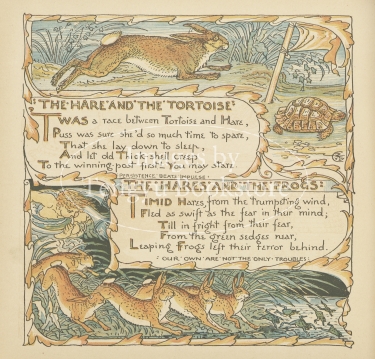 THE·HARE·AND·THE·TORTOISE:
TWAS a race between Tortoise and Hare,
Puss was sure she'd so much time to spare,
That she lay down to sleep,
And let old Thick-shell creep
To the winning post first! You may stare.
PERSISTENCE BEATS IMPULSE
THE·HARES·AND·THE·FROGS:
TIMID Hares, from the trumpeting wind,
Fled as swift as the fear in their mind;
Till in fright from their fear,
From the green sedges near,
Leaping Frogs left their terror behind.
OUR OWN ARE NOT THE ONLY TROUBLES